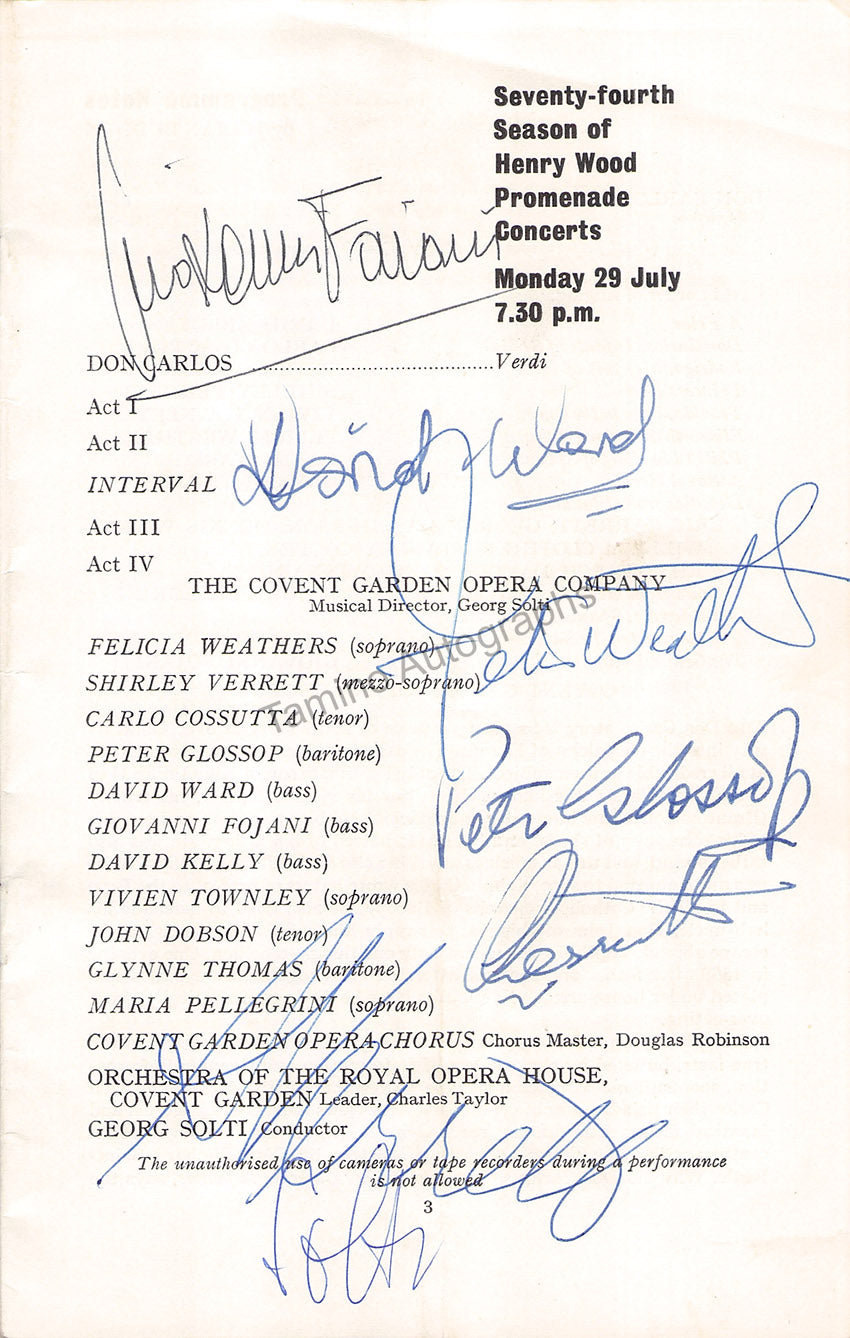 Seventy-fourth
Season of
Henry Wood
Promenade
Concerts
Monday 29 July
7.30 p.m.
DON CARLOS ..........................................Verdi
Act I
Act II
INTERVAL
Act III
Act IV
David Ward
THE COVENT GARDEN OPERA COMPANY
Musical Director, Georg Solti
Tamino Autographs
FELICIA WEATHERS (soprano)
SHIRLEY VERRETT (mezzo-soprano)
CARLO COSSUTTA (tenor)
PETER GLOSSOP (baritone)
DAVID WARD (bass)
GIOVANNI FOJANI (bass)
DAVID KELLY (bass)
VIVIEN TOWNLEY (soprano)
JOHN DOBSON (tenor)
GLYNNE THOMAS (baritone)
MARIA PELLEGRINI (soprano)
Peter Glossop
COVENT GARDEN OPERA CHORUS Chorus Master, Douglas Robinson
ORCHESTRA OF THE ROYAL OPERA HOUSE,
COVENT GARDEN Leader, Charles Taylor
GEORG SOLTI Conductor
The unauthorised use of cameras or tape recorders during a performance
is not allowed
3